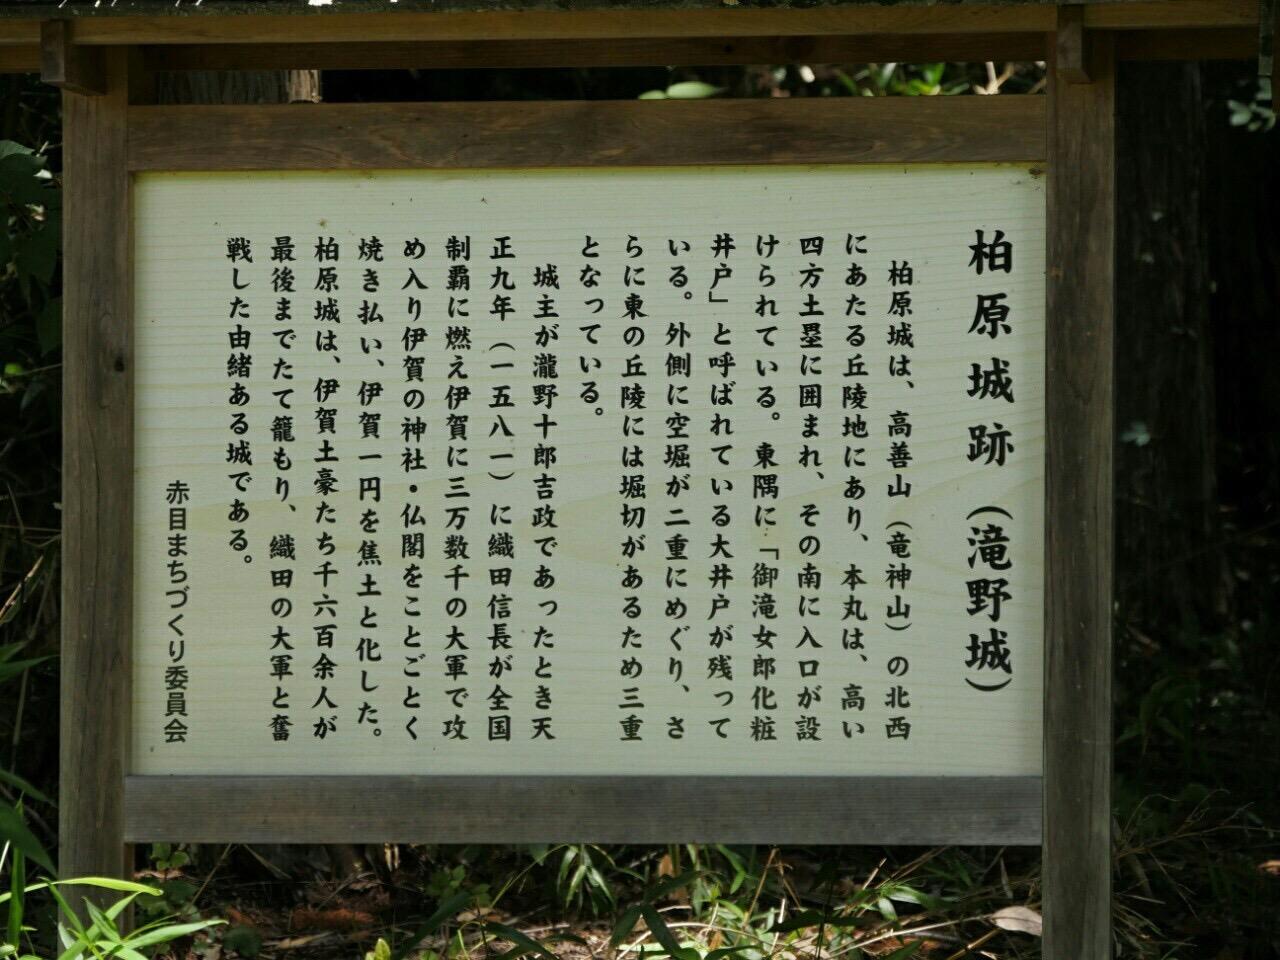 柏原城跡（滝野城）
柏原城は、高善山（竜神山）の北西
にあたる丘陵地にあり、本丸は、高い
四方土塁に囲まれ、その南に入口が設
けられている。東隅に「御滝女郎化粧
井戸」と呼ばれている大井戸が残って
いる。外側に空堀が二重にめぐり、さ
らに東の丘陵には堀切があるため三重
となっている。
城主が瀧野十郎吉政であったとき天
正九年（一五八一）に織田信長が全国
制覇に燃え伊賀に三万数千の大軍で攻
め入り伊賀の神社・仏閣をことごとく
焼き払い、伊賀一円を焦土と化した。
柏原城は、伊賀土豪たち千六百余人が
最後までたて籠もり、織田の大軍と奮
戦した由緒ある城である。
赤目まちづくり委員会